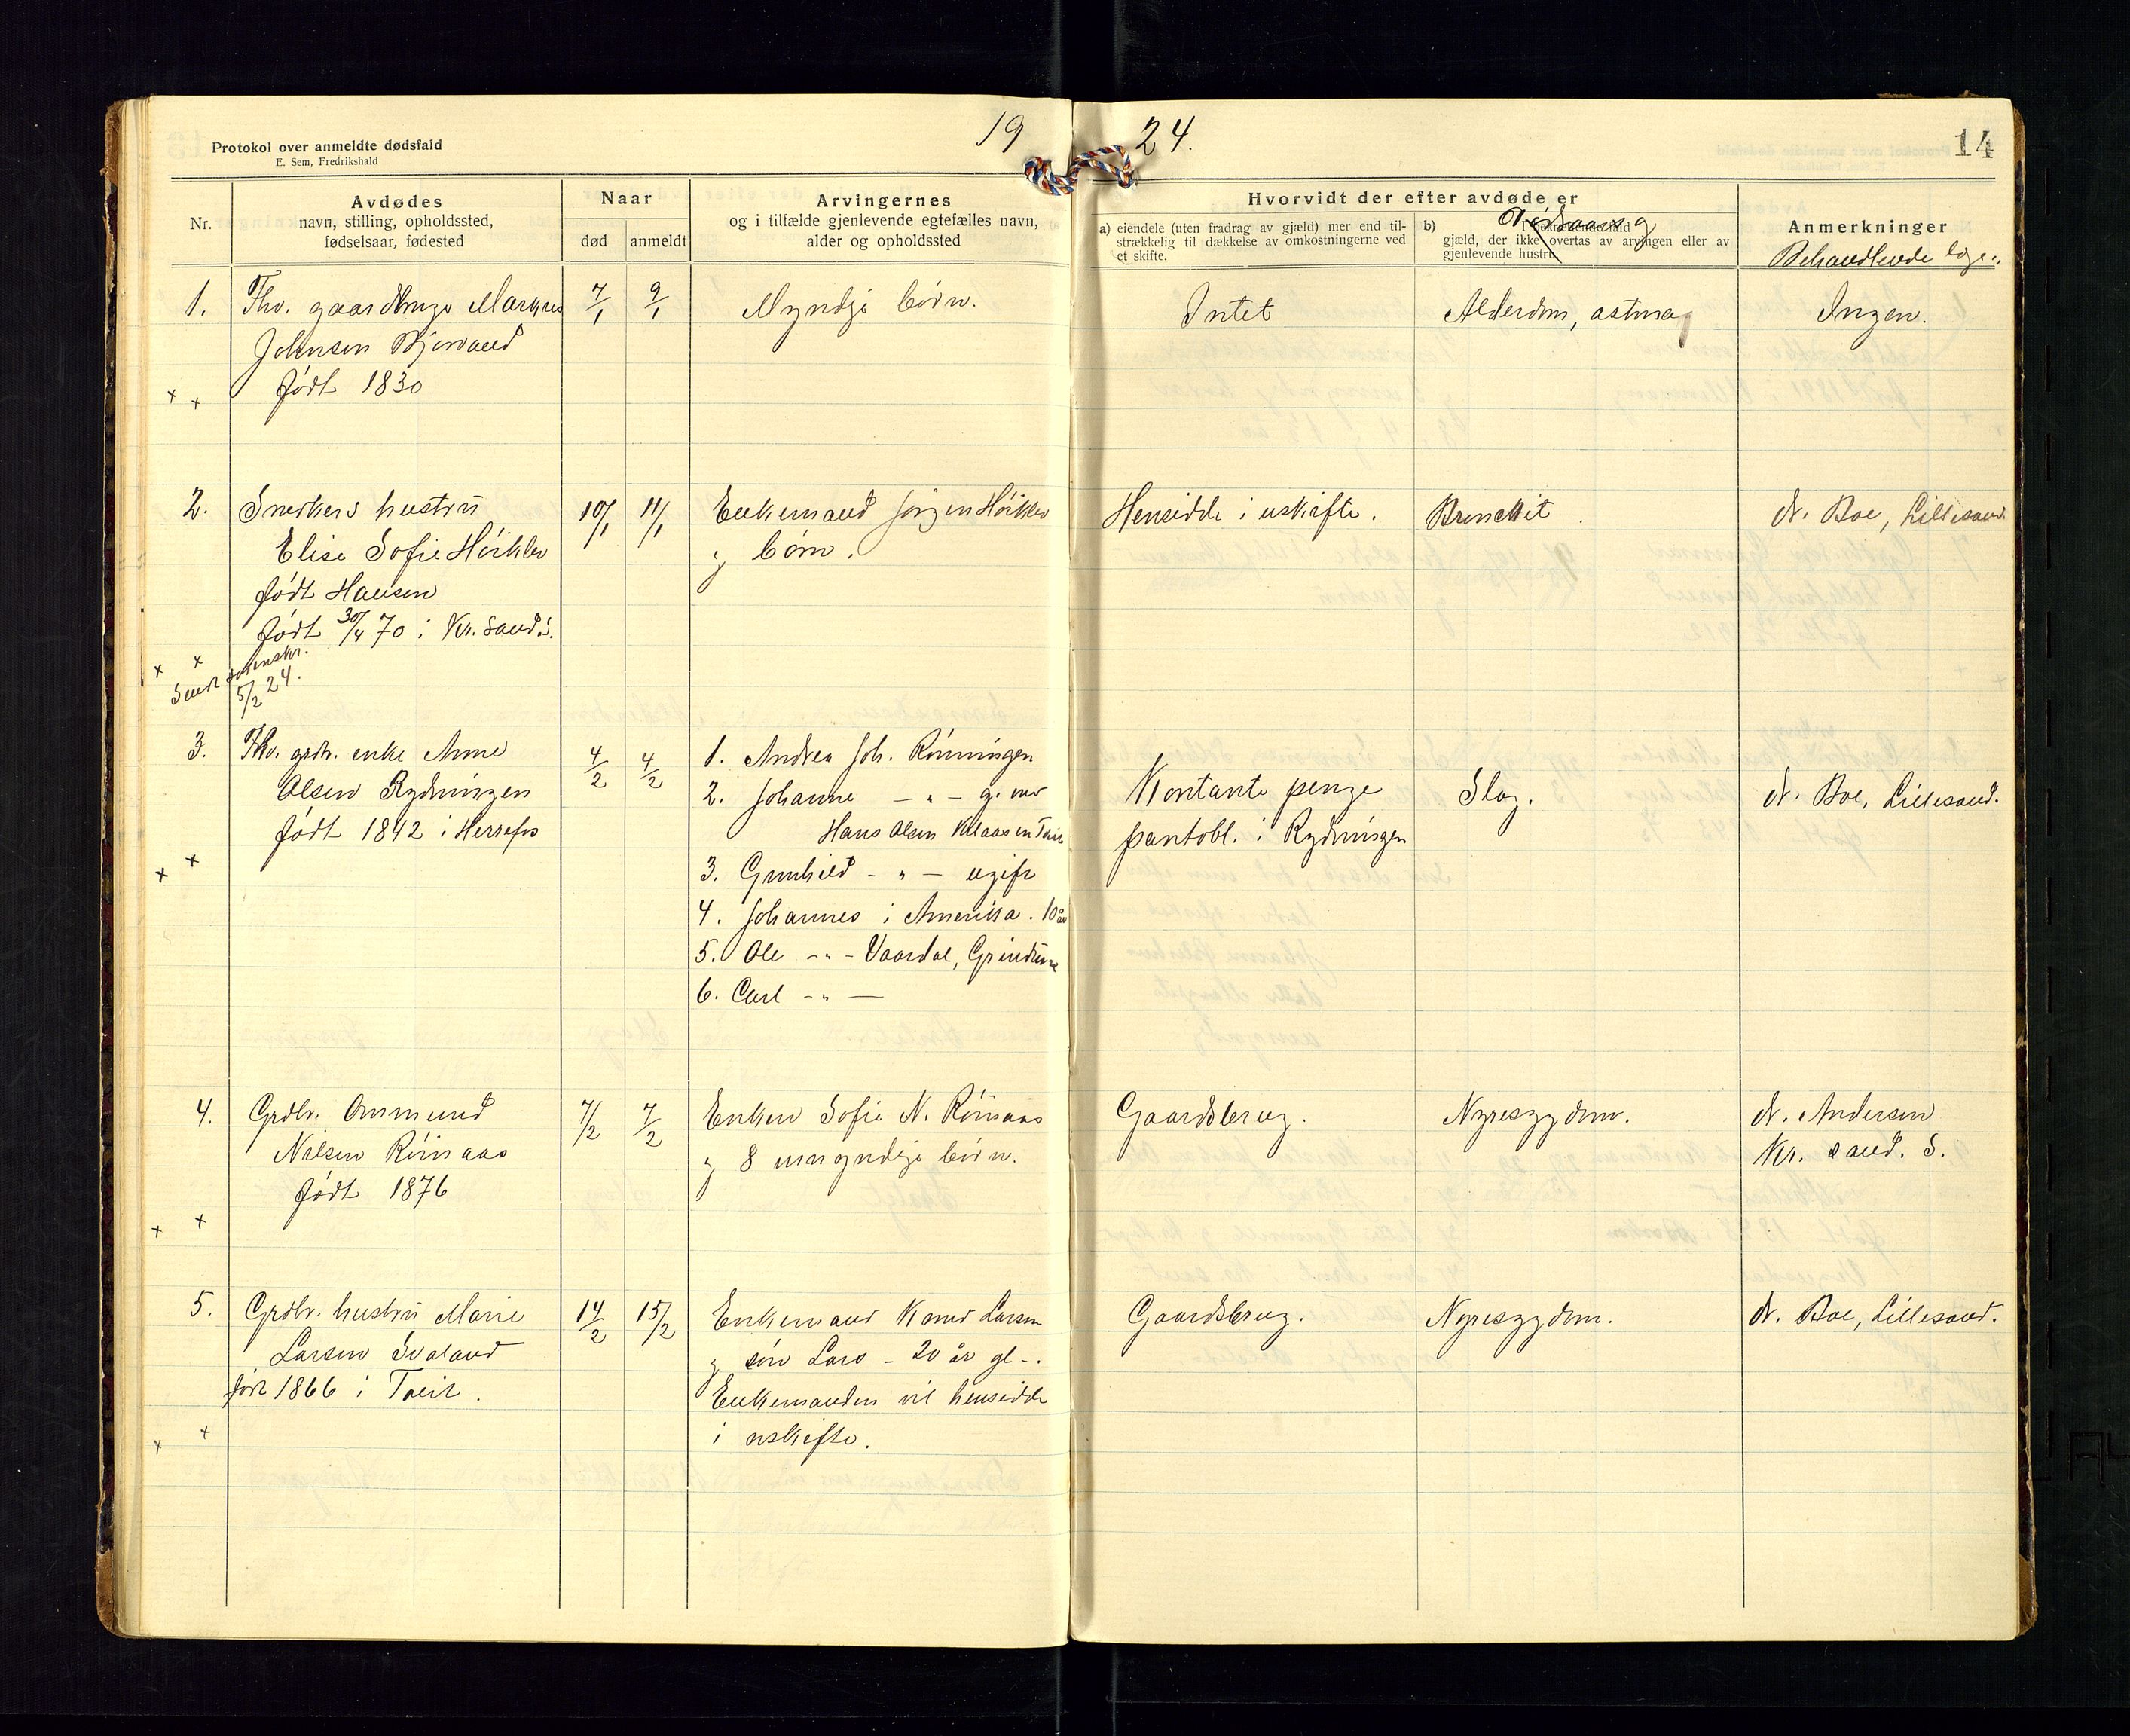 Protokol over anmeldte dødsfald
E. Sem, Fredrikshald
19 24.
14
Nr.
Avdødes
navn, stilling, opholdssted,
fødselsaar, fødested
Naar
død
anmeldt
Arvingernes
og i tilfælde gjenlevende egtefælles navn,
alder og opholdssted
Hvorvidt der efter avdøde er
a) eiendele (uten fradrag av gjæld) mer end til-
strækkelig til dækkelse av omkostningerne ved
et skifte.
Dødsaarsag
b)
gjæld, der ikke overtas av arvingen eller av
gjenlevende hustru.
Anmerkninger
Behandlende læge.
1. Fhv. gaardbruger Markus 7/1 9/1 Myndige børn. Intet Alderdom, astma Ingen.
Johnsen Bjorvand
født 1830
2. Snerkers hustru 10/1 11/1 Enkemand Jörgen Höiklev Hensidde i uskifte. Brenckit. dr. Boe, Lillesand.
Elise Sofie Höiklev og børn.
født Hansen
født 30/4 70 i Kr.sand. S.
Sendt sorenskr.
5/2 24.
3. Fhv. grdr. enke Anne 4/2 4/2 1. Andrea Joh. Rönningen
Olsen Rydningen 2. Johanne - " - g. m Kontante penge Slag. dr. Boe, Lillesand.
født 1842 i Herrefos Hans Olsen Klaasen Tveit pantobl. i Rydningen
3. Gunhild - " - ugift
4. Johannes i Amerika. 10 år
5. Ole - " - Vaardal,
6. Carl - " -
4. Grdbr. Ommund 7/2 7/2 Enken Sofie N. Rönaas Gaardsbrug. Nyresygdom. dr. Andersen
Nilsen Rönaas og 8 umyndige børn. Kr.sand. S.
født 1876
5. Grdbr. hustru Marie 14/2 15/2 Enkemand Knud Larsen Gaardsbrug. Nyresygdom. dr. Boe, Lillesand.
Larsen Svaland og søn Lars - 20 år gl -.
født 1866 i Tveit. Enkemanden vil hensidde
i uskifte.